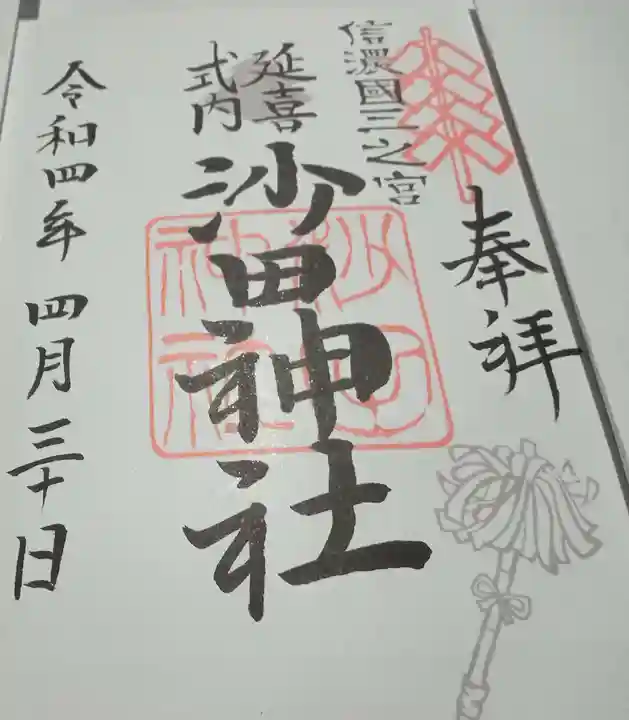 奉拝
信濃國三之宮
延喜
式内
沙田神社
沙田
神社
令和四年四月三十日